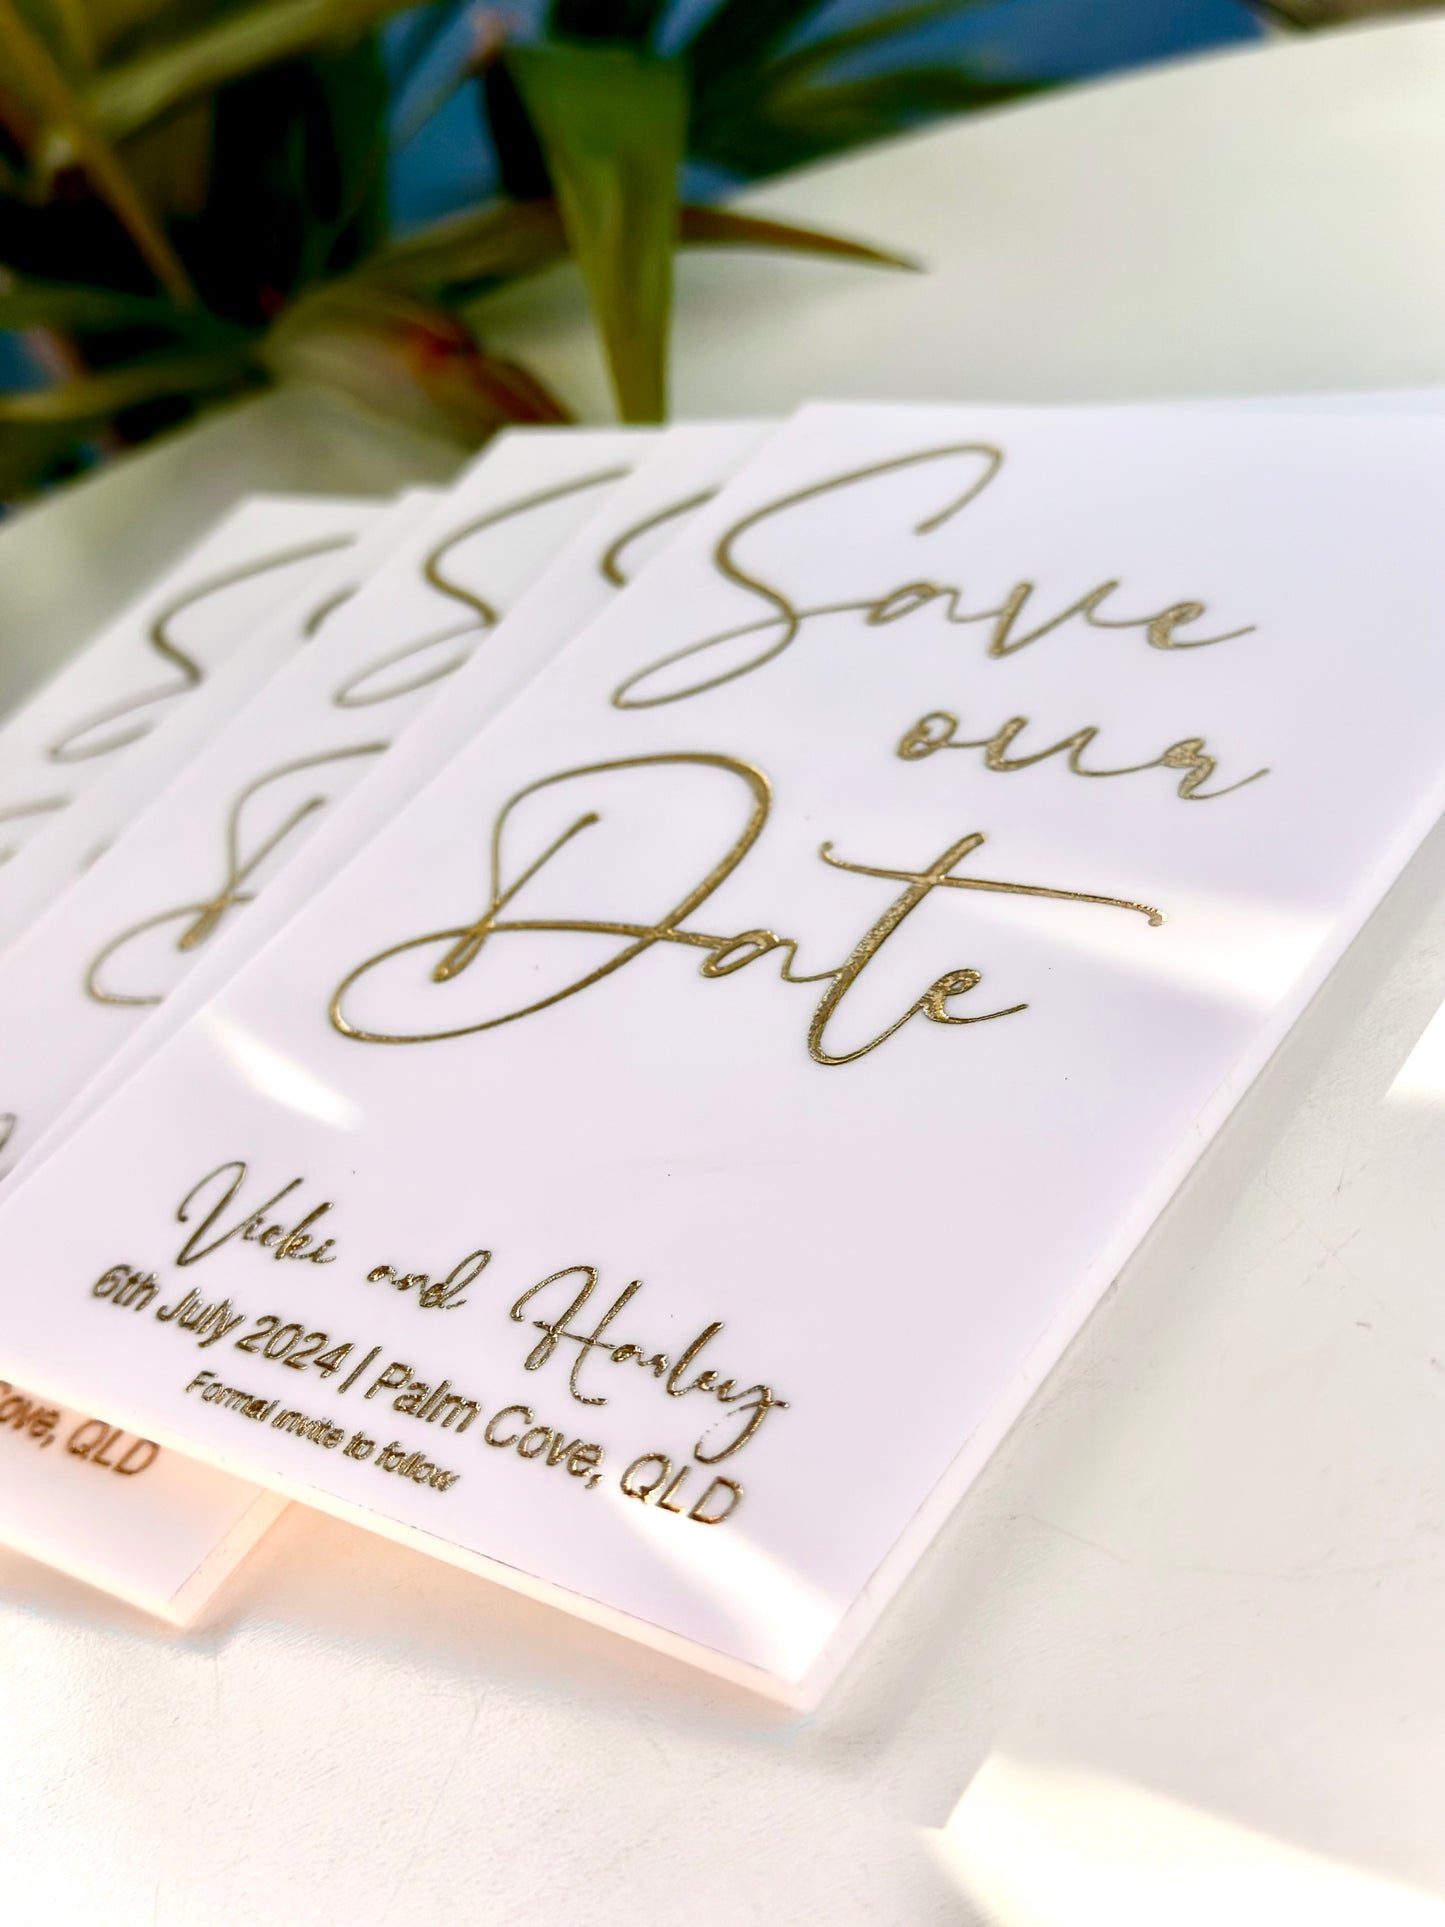 Save
our
Date
Vicki and Harley
6th July 2024 | Palm Cove, QLD
Formal invite to follow
ove, QLD